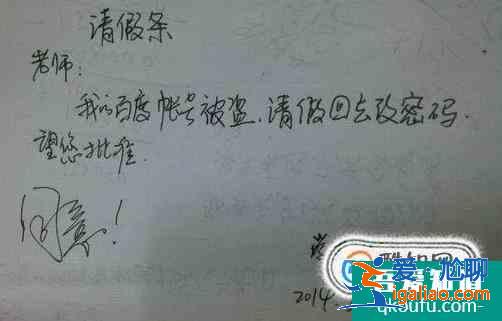 请假条
老师:
我的百度帐号被盗.请假回去改密码.
望您批准.
同意!
2014
爱尬聊
igaoliao.com
qk3ufu.com